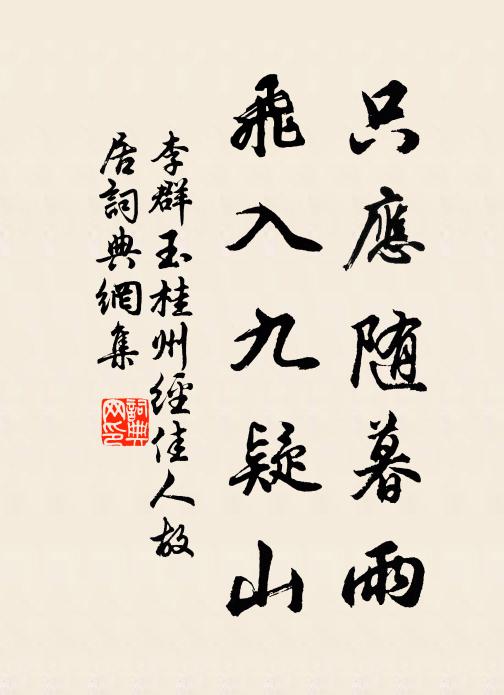 只應随暮雨
飛入九疑山
李群玉桂州經佳人故
居詞典網集
詞典網印